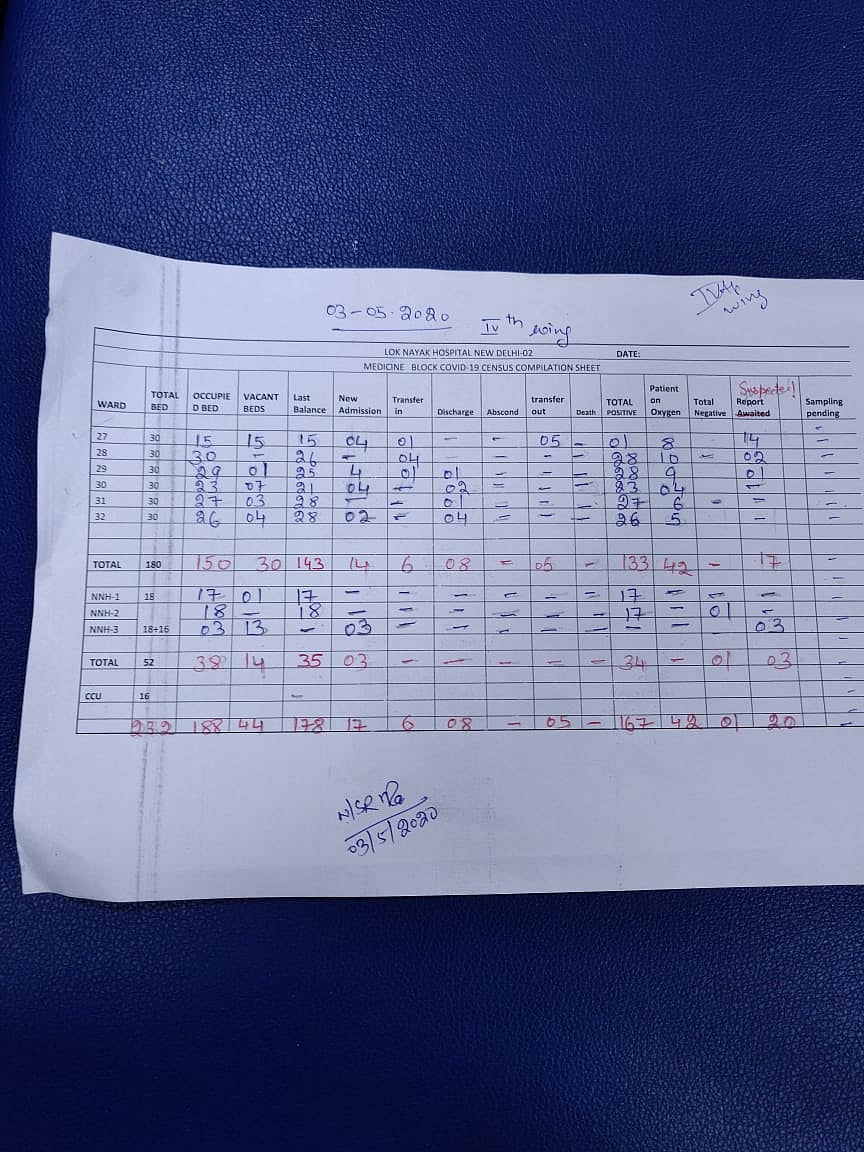 03-05-2020 IVth wing
IVth wing
LOK NAYAK HOSPITAL NEW DELHI-02 DATE:
MEDICINE BLOCK COVID-19 CENSUS COMPILATION SHEET
WARD TOTAL BED OCCUPIE D BED VACANT BEDS Last Balance New Admission Transfer in Discharge Abscond transfer out Death TOTAL POSITIVE Patient on Oxygen Total Negative Suspected Report Awaited Sampling pending
27 30 15 15 15 04 01 - - 05 - 01 8 14 -
28 30 30 - 26 - 04 - - - 28 10 - 02 -
29 30 29 01 25 4 01 01 - - - 28 9 01 -
30 30 23 07 21 04 - 02 = - - 23 04 - -
31 30 27 03 28 - - 01 = - - 27 6 - - -
32 30 26 04 28 02 - 04 = - - 26 5 - -
TOTAL 180 150 30 143 14 6 08 = 05 - 133 42 - 17 -
NNH-1 18 17 01 17 - - - - - = 17 - - - -
NNH-2 18 - 18 - - - - - - 17 - 01 - -
NNH-3 18+16 03 13 - 03 - - - - - - - 03 -
TOTAL 52 38 14 35 03 - - - - - 34 - 01 03 -
CCU 16 -
232 188 44 178 17 6 08 - 05 - 167 42 01 20 -
03/5/2020